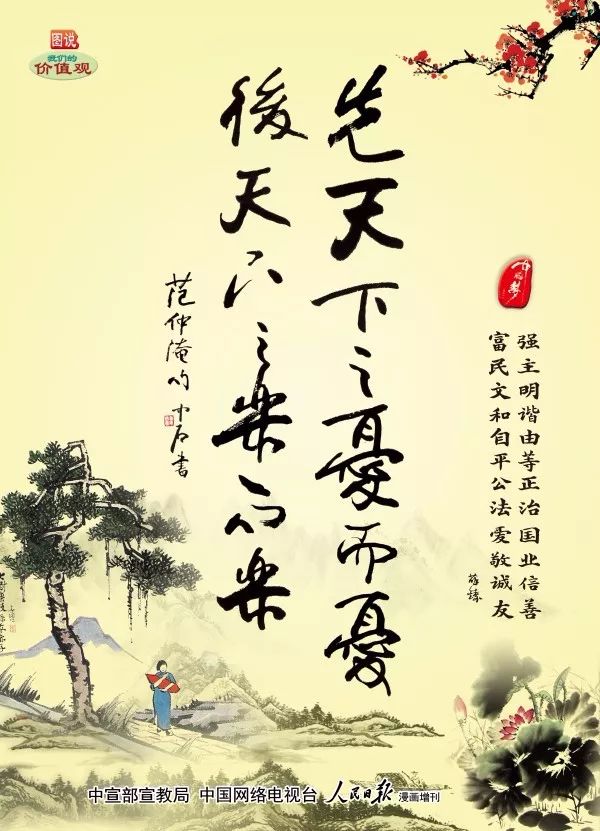 图说
我们的
价值观
先天下之憂而憂
後天下之樂而樂
范仲淹句 中石書
中国梦
富强
民主
文明
和谐
自由
平等
公正
法治
爱国
敬业
诚信
友善
中宣部宣教局 中国网络电视台 人民日报 漫画增刊